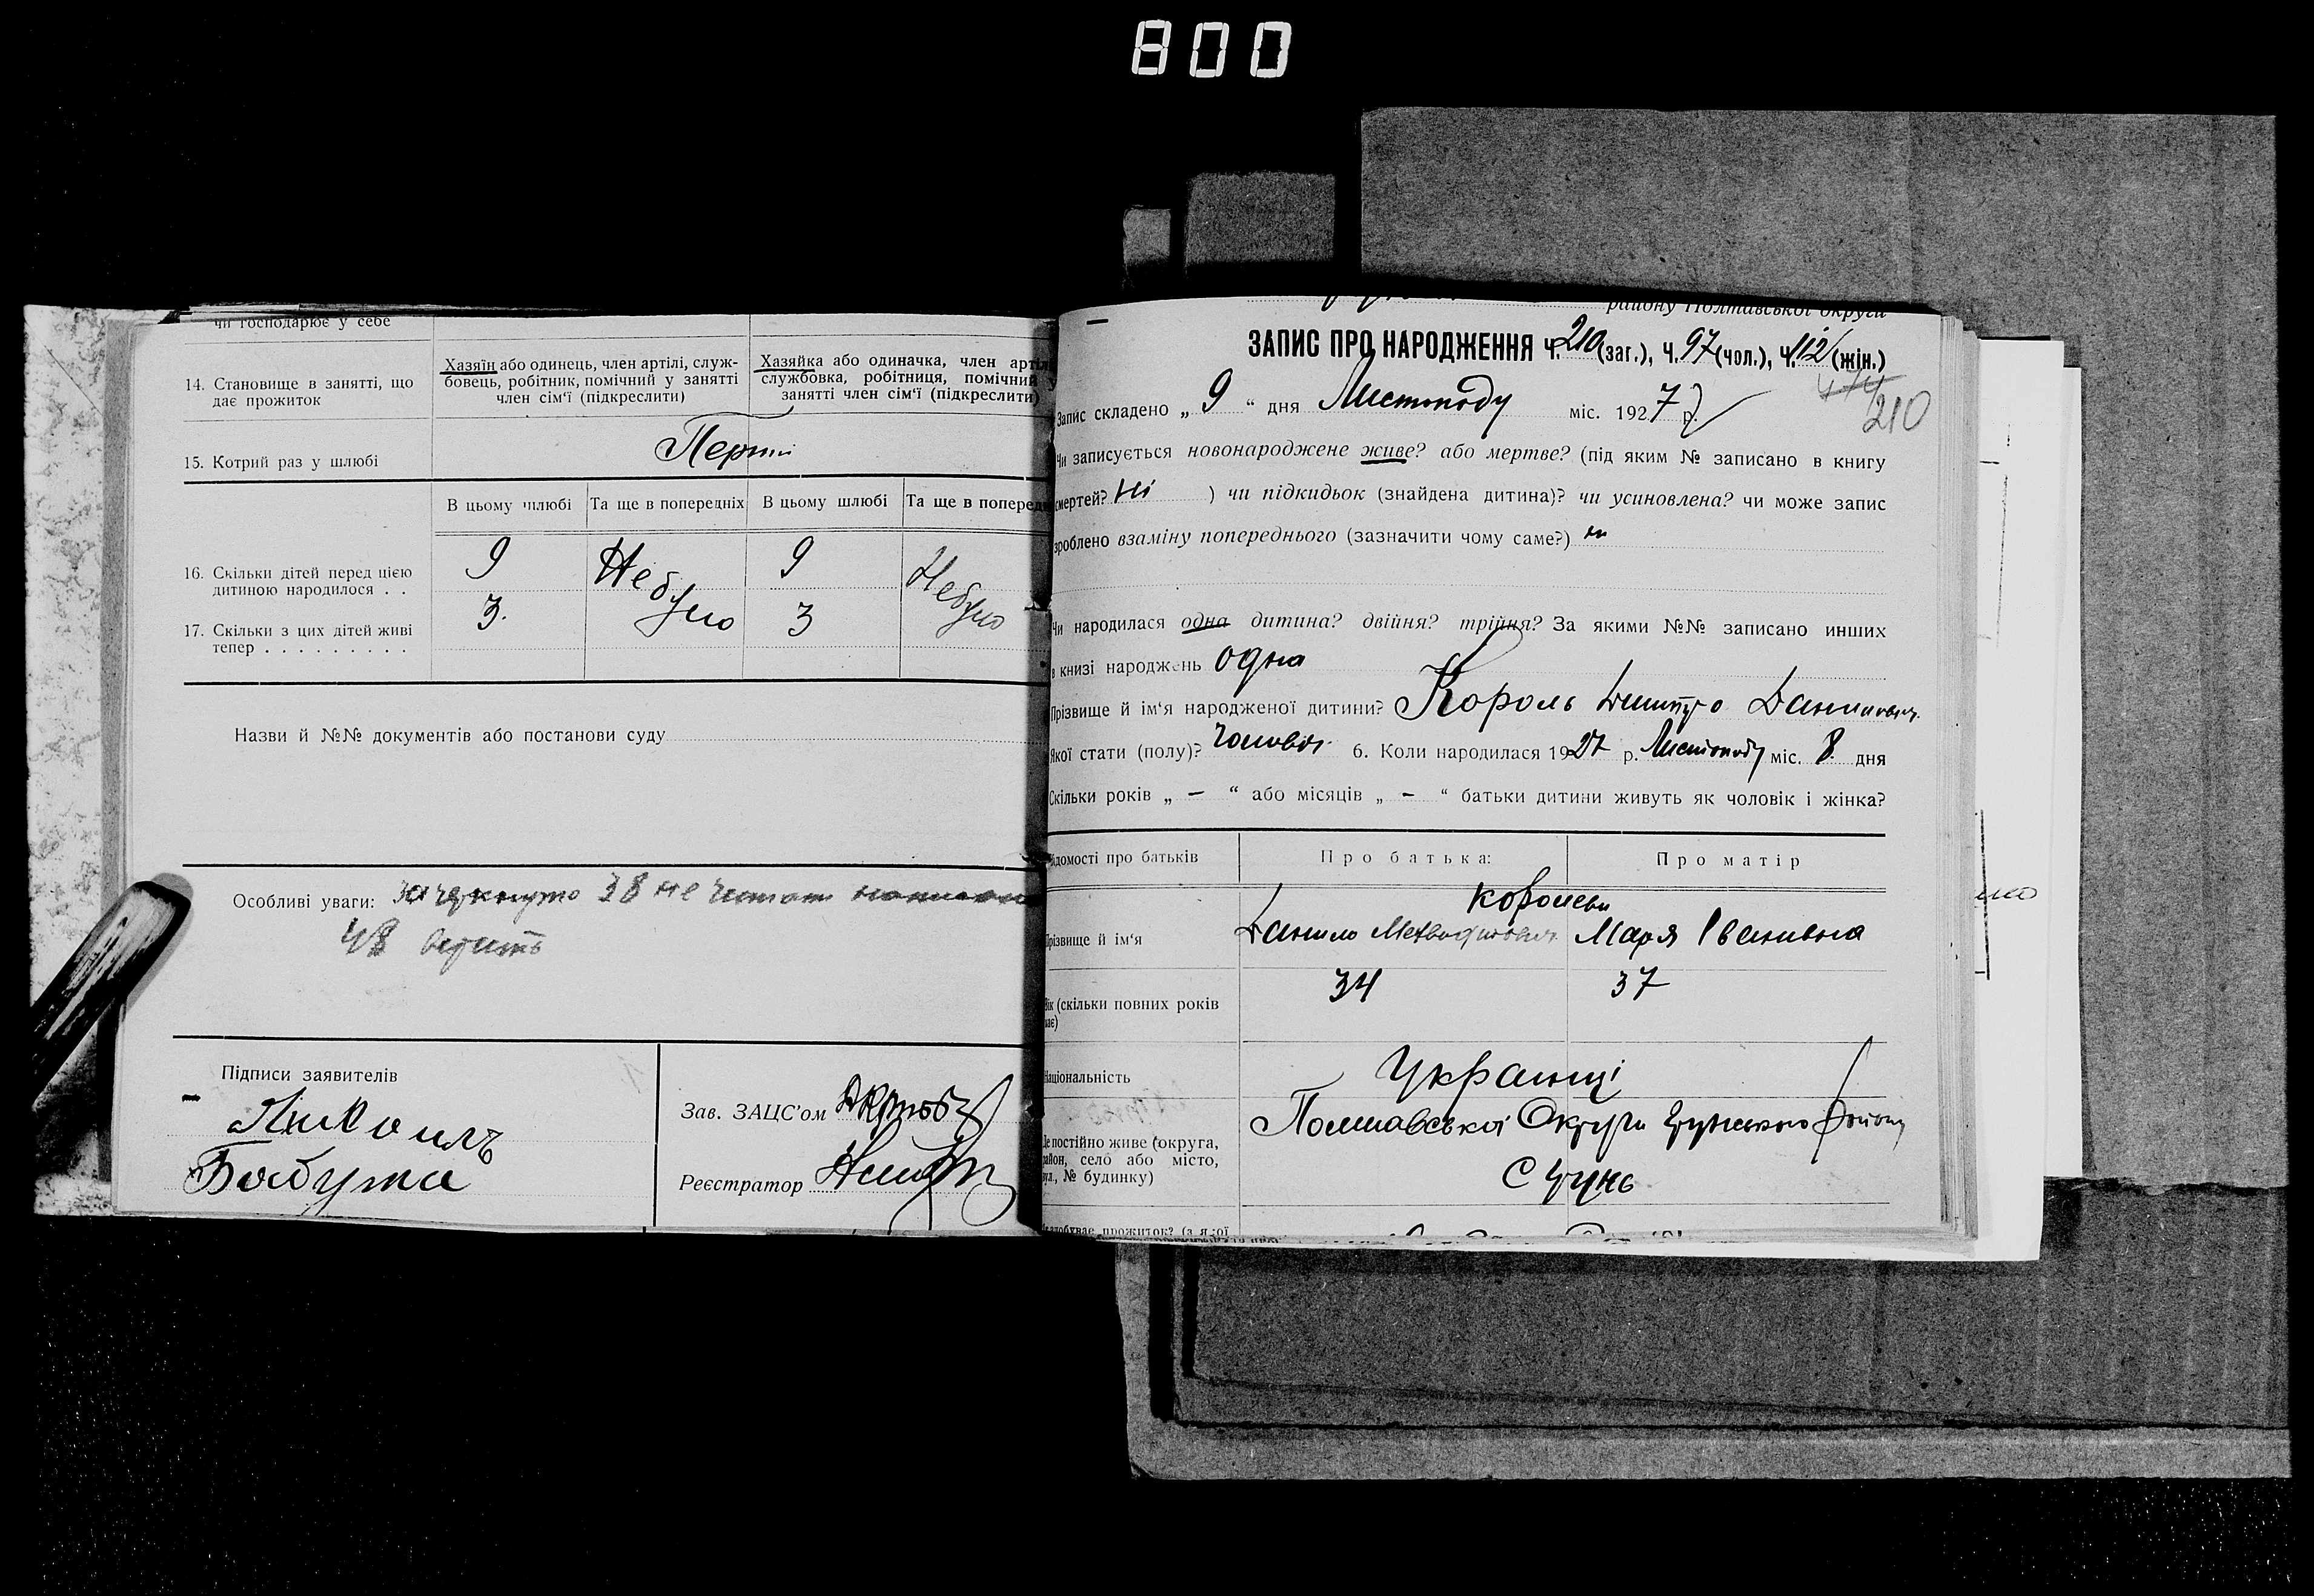 800
чи господарює у себе
14. Становище в занятті, що дає прожиток
Хазяїн або одинець, член артілі, служ-
бовець, робітник, помічний у занятті
член сім'ї (підкреслити)
Хазяйка або одиначка, член артілі
службовка, робітниця, помічний у
занятті член сім'ї (підкреслити)
15. Котрий раз у шлюбі
Перши
В цьому шлюбі Та ще в попередніх В цьому шлюбі Та ще в поперед
16. Скільки дітей перед цією
дитиною народилося . .
9 Не було 9 Не було
17. Скільки з цих дітей живі
тепер . . . . . . . . .
3. 3
Назви й №№ документів або постанови суду
Особливі уваги: зачеркнуто 38 не читати
48 вірить
Підписи заявителів
Бабута
Зав. ЗАЦС'ом
Реєстратор
району Полтавської округи
ЗАПИС ПРО НАРОДЖЕННЯ Ч. 210 (заг.), Ч. 97 (чол.), Ч. 112 (жін.)
474
210
Запис складено „ 9 “ дня Листопаду міс. 1927 р.
Чи записується новонароджене живе? або мертве? (під яким № записано в книгу
смертей? Ні ) чи підкидьок (знайдена дитина)? чи усиновлена? чи може запис
зроблено взаміну попереднього (зазначити чому саме?) ні
Чи народилася одна дитина? двійня? трійня? За якими №№ записано инших
в книзі народжень одна
Прізвище й ім'я народженої дитини? Король Дмитро Данилович
Якої стати (полу)? чоловіч. 6. Коли народилася 1927 р. Листопаду міс. 8. дня
Скільки років „ — “ або місяців „ — “ батьки дитини живуть як чоловік і жінка?
ідомості про батьків Про батька: Про матір
Королеви
Прізвище й ім'я Данило Мехводійович Марія Іванивна
Вік (скільки повних років має) 34 37
Національність Українці
Де постійно живе (округа,
район, село або місто,
вул., № будинку)
Полтавської Округи району
С
здобуває прожиток? (з якої